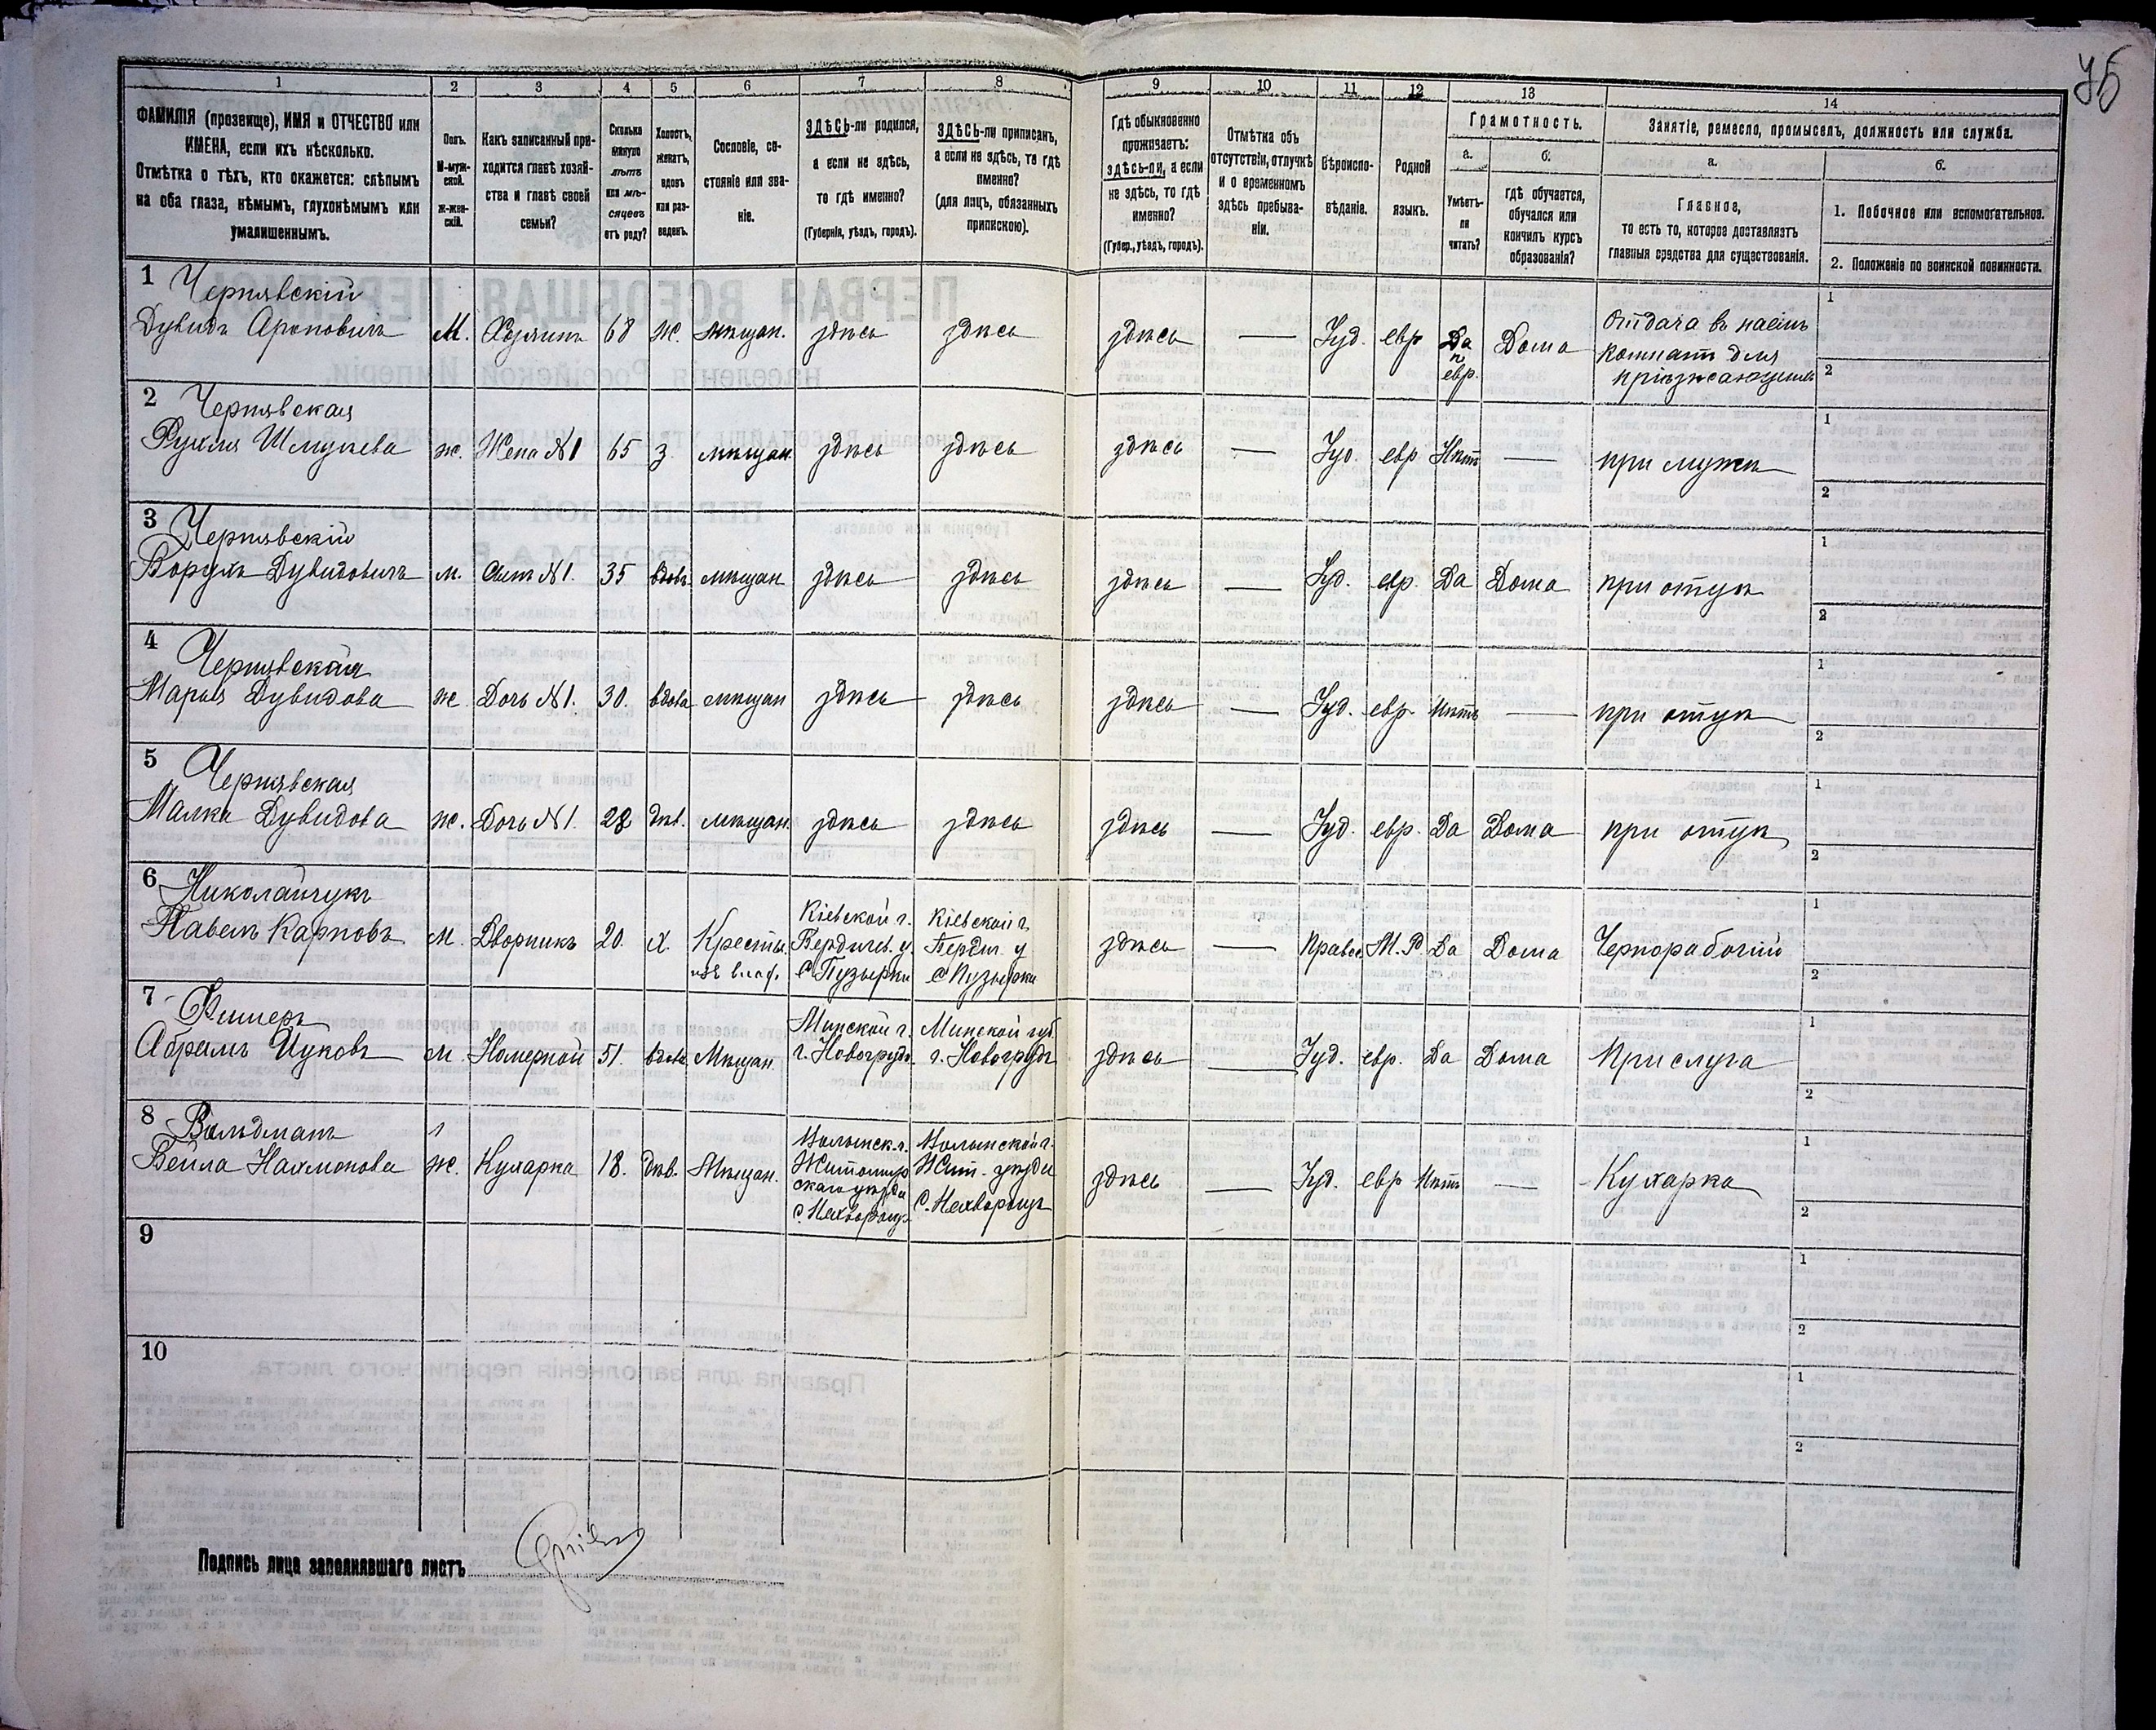 75
1 2 3 4 5 6 7 8 9 10 11 12 13 14
ФАМИЛІЯ (прозвище), ИМЯ и ОТЧЕСТВО или
ИМЕНА, если ихъ нѣсколько.
Отмѣтка о тѣхъ, кто окажется: слѣпымъ
на оба глаза, нѣмымъ, глухонѣмымъ или
умалишеннымъ.
Полъ.
М-муж-
ской.
ж-жен-
скій.
Какъ записанный при-
ходится главѣ хозяй-
ства и главѣ своей
семьи?
Сколько
минуло
лѣтъ
или мѣ-
сяцевъ
отъ роду?
Холостъ,
женатъ,
вдовъ
или раз-
веденъ.
Сословіе, со-
стояніе или зва-
ніе.
ЗДѢСЬ-ли родился,
а если не здѣсь,
то гдѣ именно?
(Губернія, уѣздъ, городъ).
ЗДѢСЬ-ли приписанъ,
а если не здѣсь, то гдѣ
именно?
(для лицъ, обязанныхъ
припискою).
Гдѣ обыкновенно
проживаетъ:
здѣсь-ли, а если
не здѣсь, то гдѣ
именно?
(Губер., уѣздъ, городъ).
Отмѣтка объ
отсутствіи, отлучкѣ
и о временномъ
здѣсь пребыва-
ніи.
Вѣроиспо-
вѣданіе.
Родной
языкъ.
Грамотность.
а.
Умѣетъ-
ли
читать?
б.
гдѣ обучается,
обучался или
кончилъ курсъ
образованія?
Занятіе, ремесло, промыселъ, должность или служба.
а.
Главное,
то есть то, которое доставляетъ
главныя средства для существованія.
б.
1. Побочное или вспомогательное.
2. Положеніе по воинской повинности.
1 Чернявскій
Дувидъ Ароновичъ М. Хозяинъ 68 Ж. мѣщан. здѣсь здѣсь здѣсь — Іуд. евр Да Дома
п
евр.
Отдача в наемъ
комнатъ для
пріѣзжающихъ
1
2
2 Чернявская
Рухля Шмулева ж. Жена №1 65 з. мѣщан. здѣсь здѣсь здѣсь — Іуд. евр Нѣтъ — при мужѣ
1
2
3 Чернявскій
Борухъ Дувидовичъ м. Сынъ №1. 35 вдовъ мѣщан здѣсь здѣсь здѣсь — Іуд. евр. Да Дома при отцѣ
1
2
4 Чернявская
Марья Дувидова ж. Дочь №1. 30. вдова мѣщан здѣсь здѣсь здѣсь — Іуд. евр. Нѣтъ — при отцѣ
1
2
5 Чернявская
Малка Дувидова ж. Дочь №1. 28 дѣв. мѣщан. здѣсь здѣсь здѣсь — Іуд. евр. Да Дома при отцѣ
1
2
6 Николайчукъ
Павелъ Карповъ М. Дворникъ 20. Х. Крестьян. здѣсь — Правос. М.Р. Да Дома Чернорабочій
изъ влад.
Кіевской г.
Бердичев. у.
С Пузырки
Кіевской г.
Бердич. у
С Пузырки
1
2
7 Фишеръ
Абрамъ Ицковъ М. Номерной 51. вдовъ Мѣщан. здѣсь — Іуд. евр. Да Дома Прислуга
Минской г.
г. Новогрудъ
Минской губ.
г. Новогрудъ
1
2
8 Вальдманъ
Бейла Нахмонова Ж. Кухарка 18. дѣв. Мѣщан. здѣсь — Іуд. евр Нѣтъ — Кухарка
Волынск. г.
Житомир
скаго уѣзда
с.
Волынской г.
Жит. уѣзда
С.
1
2
9
1
2
10
1
2
Подпись лица заполнявшаго листъ